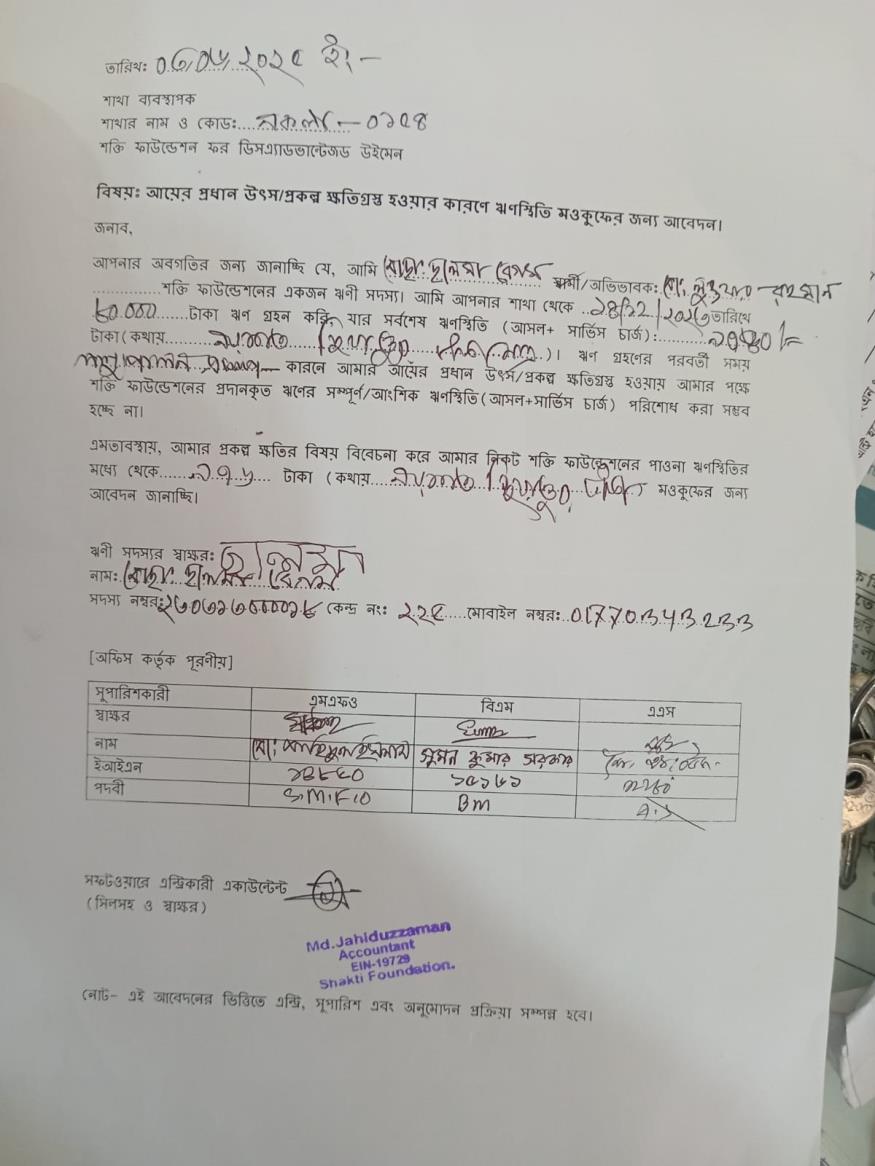 তারিখ: ০৩/০৮/২০২৫ ইং-
শাখা ব্যবস্থাপক
শাখার নাম ও কোড: নকলা-০১৫৪
শক্তি ফাউন্ডেশন ফর ডিসএ্যাডভান্টেজড উইমেন
বিষয়: আয়ের প্রধান উৎস/প্রকল্প ক্ষতিগ্রস্ত হওয়ার কারণে ঋণস্থিতি মওকুফের জন্য আবেদন।
জনাব,
আপনার অবগতির জন্য জানাচ্ছি যে, আমি মোছা: হালিমা বেগম স্বামী/অভিভাবক: মো: রহমান
শক্তি ফাউন্ডেশনের একজন ঋনী সদস্য। আমি আপনার শাখা থেকে তারিখে
৮০.০০০ টাকা ঋণ গ্রহন করি, যার সর্বশেষ ঋণস্থিতি (আসল+ সার্ভিস চার্জ):
টাকা (কথায় )। ঋণ গ্রহণের পরবর্তী সময়
কারনে আমার আয়ের প্রধান উৎস/প্রকল্প ক্ষতিগ্রস্ত হওয়ায় আমার পক্ষে
শক্তি ফাউন্ডেশনের প্রদানকৃত ঋনের সম্পূর্ণ/আংশিক ঋণস্থিতি (আসল+সার্ভিস চার্জ) পরিশোধ করা সম্ভব
হচ্ছে না।
এমতাবস্থায়, আমার প্রকল্প ক্ষতির বিষয় বিবেচনা করে আমার নিকট শক্তি ফাউন্ডেশনের পাওনা ঋণস্থিতির
মধ্যে থেকে টাকা (কথায় ) মওকুফের জন্য
আবেদন জানাচ্ছি।
ঋনী সদস্যর স্বাক্ষর: হালিমা
নাম: মোছা: হালিমা বেগম
সদস্য নম্বর: কেন্দ্র নং: ২২৫ মোবাইল নম্বর: 01770343233
[অফিস কর্তৃক পূরনীয়]
সুপারিশকারী এমএফও বিএম এএস
স্বাক্ষর
নাম মো: সুমন কুমার সরকার
ইআইএন
পদবী S.M.F.O BM A.S
সফটওয়ারে এন্ট্রিকারী একাউন্টেন্ট
(সিলসহ ও স্বাক্ষর)
Md.Jahiduzzaman
Accountant
EIN-19729
Shakti Foundation.
নোট- এই আবেদনের ভিত্তিতে এন্ট্রি, সুপারিশ এবং অনুমোদন প্রক্রিয়া সম্পন্ন হবে।